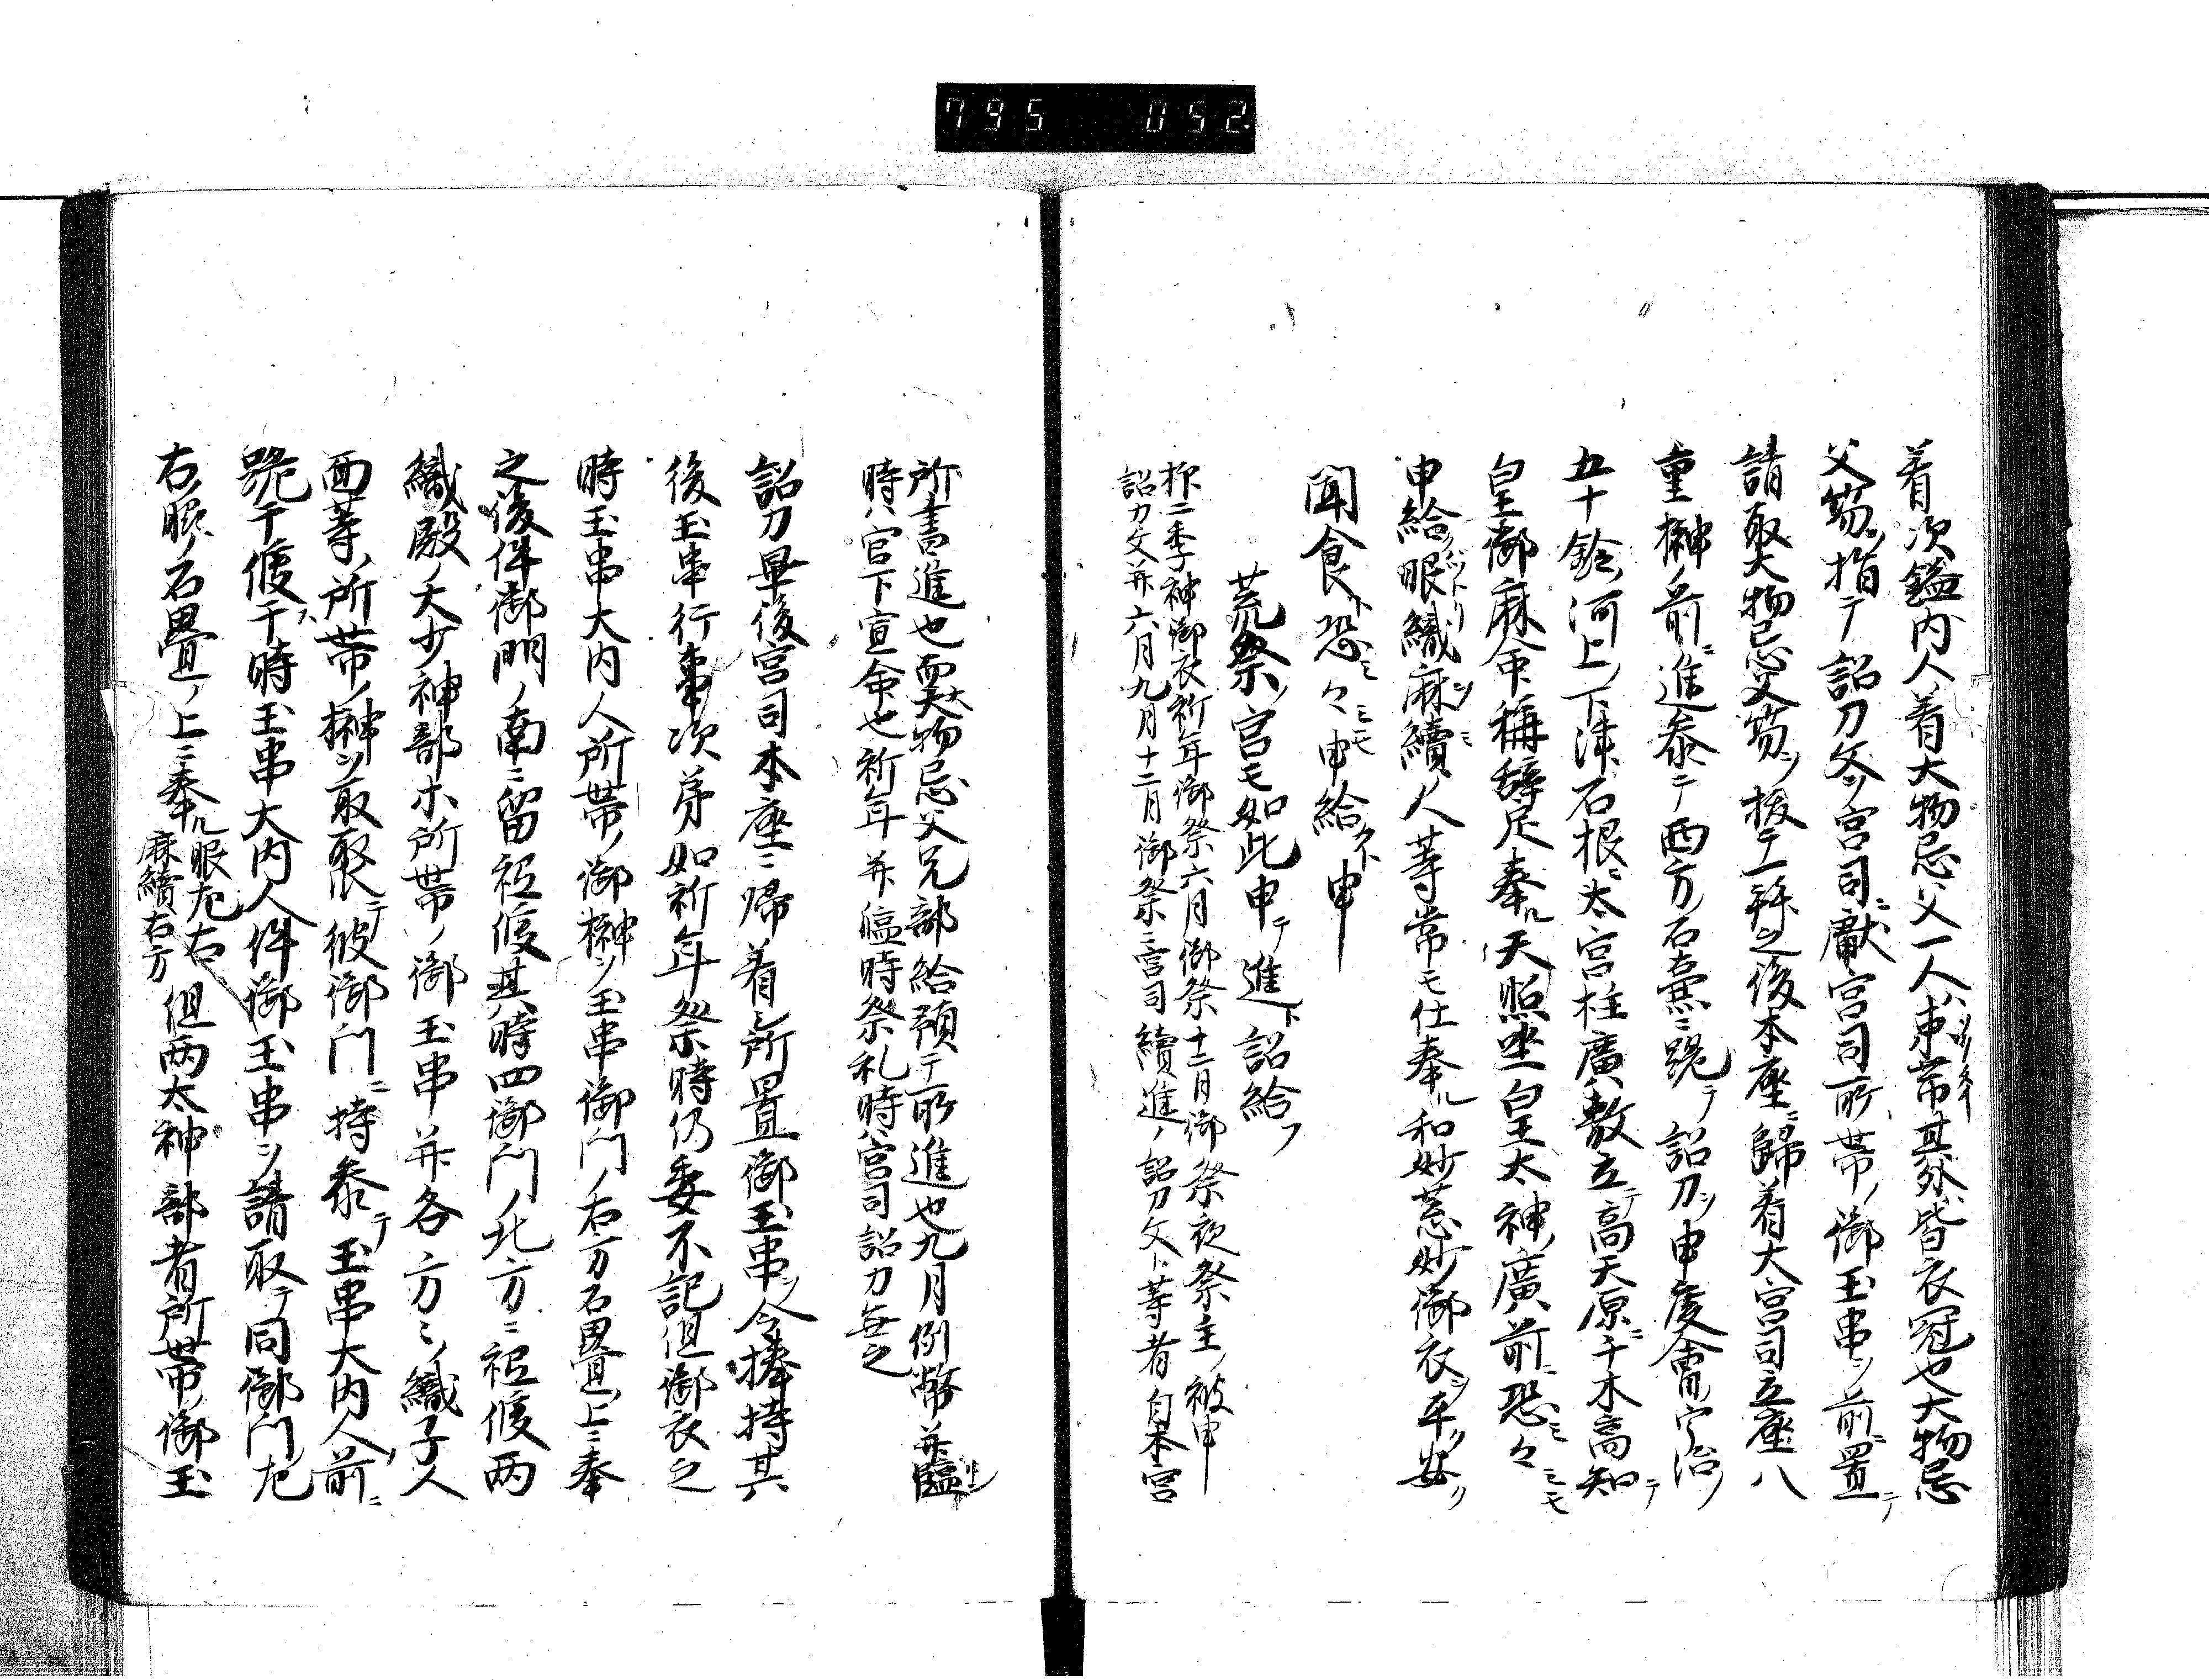 795 052
着次鎰内人着大物忌父一人ハ束帯其外皆衣冠也大物忌
父笏ヲ指テ詔刀文ヲ宮司ニ献宮司所帯ノ御玉串ヲ前ニ置テ
請取大物忌父笏ヲ抜テ一拜之後本座ニ歸着大宮司立座八
重榊ノ前ニ進参テ西方ノ石壼ニ跪テ詔刀ヲ申度會ノ宇治ノ
五十鈴ノ河上ノ下津石根ニ太宮柱廣敷立テ高天原ニ千木高知テ
皇御麻命稱辞定奉ル天照坐皇太神ノ廣前ニ恐ミ々ミモ
申給ハトリ服織麻續ノ人等常モ仕奉ル和妙荒妙御衣ヲ平ク安ク
聞食ト恐ミ々ミモ申給ハクト申
荒祭ノ宮モ如此申テ進ト詔給フ
抑二季神御衣祈年御祭六月御祭十二月御祭夜祭主ノ被申
詔刀文并六月九月十二月御祭ニ宮司續進ノ詔刀文ト等者自本宮
所書進也而大物忌父兄部給預テ所進也九月例幣并臨
時ハ官下宣命也祈年并臨時祭礼時ハ宮司詔刀無之
詔刀畢後宮司本座ニ歸着ニ所置御玉串ヲ令捧持其
後玉串行事次第如祈年祭時仍委不記但御衣之
時玉串大内人所帯ノ御榊ヲ玉串御門ノ右方石畳ノ上ニ奉
之後件御門ノ南ニ留祗候其時四御門ノ北方ニ祗候両
織殿ノ大少神部ホ所帯ノ御玉串并各方々ノ織子人
面等ノ所帯ノ榊ヲ取聚テ彼御門ニ持参テ玉串大内人前ニ
跪テ候于時玉串大内人件御玉串ヲ請取テ同御門左
右腋ノ石畳ノ上ニ奉ル服左右麻續右方但両太神部者所帯ノ御玉